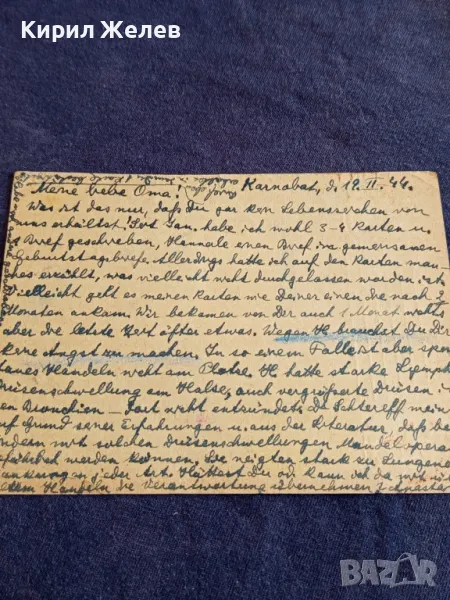 Кирил Желев
Karnobat, d. 19. II. 44.
Meine liebe Oma!
Was ist das nur, daß Du gar kein Lebenszeichen von
uns erhältst! Seit Jan. habe ich wohl 3-4 Karten u.
Brief geschrieben, Hannele einen Brief im gemeinsamen
Geburtstagsbrief. Allerdings hatte ich auf den Karten man-
ches erzählt, was vielleicht nicht durchgelassen worden ist.
Vielleicht geht es meinen Karten wie Deiner einen die nach 3
Monaten ankam. Wir bekamen von Dir auch 1 Monat nichts
aber die letzte Zeit öfter etwas. Wegen H. brauchst Du Dir
keine Angst zu machen. In so einem Falle ist aber spon-
tanes Handeln nicht am Platze. H. hatte starke Lymph-
drüsenschwellung am Halse, auch vergrößerte Drüsen i.
den Bronchien - dort nicht entzündet. Da
auf Grund seiner Erfahrungen u. aus der Literatur, daß bei
Kindern mit solchen Drüsenschwellungen Mandeloperat
gefährlich werden können, sie neigten stark zu Lungen
in jeder Art. Hättest Du od. kann ich da mit
Handeln die Verantwortung übernehmen?
BAZAR
bg